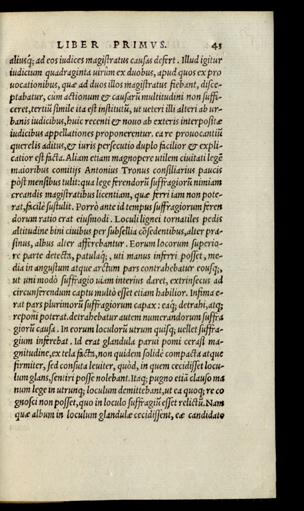 LIBER PRIMVS. 43
aliusq́; ad eos iudices magistratus causas defert. Illud igitur
iudicium quadraginta uirûm ex duobus, apud quos ex pro
uocationibus, quæ ad duos illos magistratus fiebant, disce-
ptabatur, cùm actionum & causarũ multitudini non suffi-
ceret, tertiũ simile ita est institutũ, ut ueteri illi alteri ab ur-
banis iudicibus, huic recenti & nouo ab exteris interpositæ
iudicibus appellationes proponerentur. ea re prouocantiũ
querelis aditus, & iuris persecutio duplo facilior & expli-
catior est facta. Aliam etiam magnopere utilem ciuitati legẽ
maioribus comitijs Antonius Tronus consiliarius paucis
pòst mensibus tulit: qua lege ferendorũ suffragiorũ nimiam
creandis magistratibus licentiam, quæ ferri iam non pote-
rat, facilè sustulit. Porrò ante id tempus suffragiorum feren
dorum ratio erat eiusmodi. Loculi lignei tornatiles pedis
altitudine bini ciuibus per subsellia cõsedentibus, alter pra-
sinus, albus alter afferebantur. Eorum locorum superio-
re parte detecta, patulaq́;, uti manus inferri posset, me-
dia in angustum atque arctum pars contrahebatur eousq́;,
ut uni modò suffragio uiam interius daret, extrinsecus ad
circunferendum captu multò esset etiam habilior. Infima e-
rat pars plurimorũ suffragiorum capax: eaq́; detrahi, atq́;
reponi poterat. detrahebatur autem numerandorum suffra
giorũ causa. In eorum loculorũ utrum quisq́; uellet suffra-
gium inferebat. Id erat glandula parui pomi cerasi ma-
gnitudine, ex tela facta, non quidem solidè compacta atque
firmiter, sed consuta leuiter, quòd, in quem cecidisset locu-
lum glans, sentiri posse nolebant. Itaq́; pugno etiã clauso ma
num lege in utrunq́; loculum demittebant, ut ea quoq́; re co
gnosci non posset, quo in loculo suffragiũ esset relictũ. Nam
quæ album in loculum glandulæ cecidissent, eæ candidato